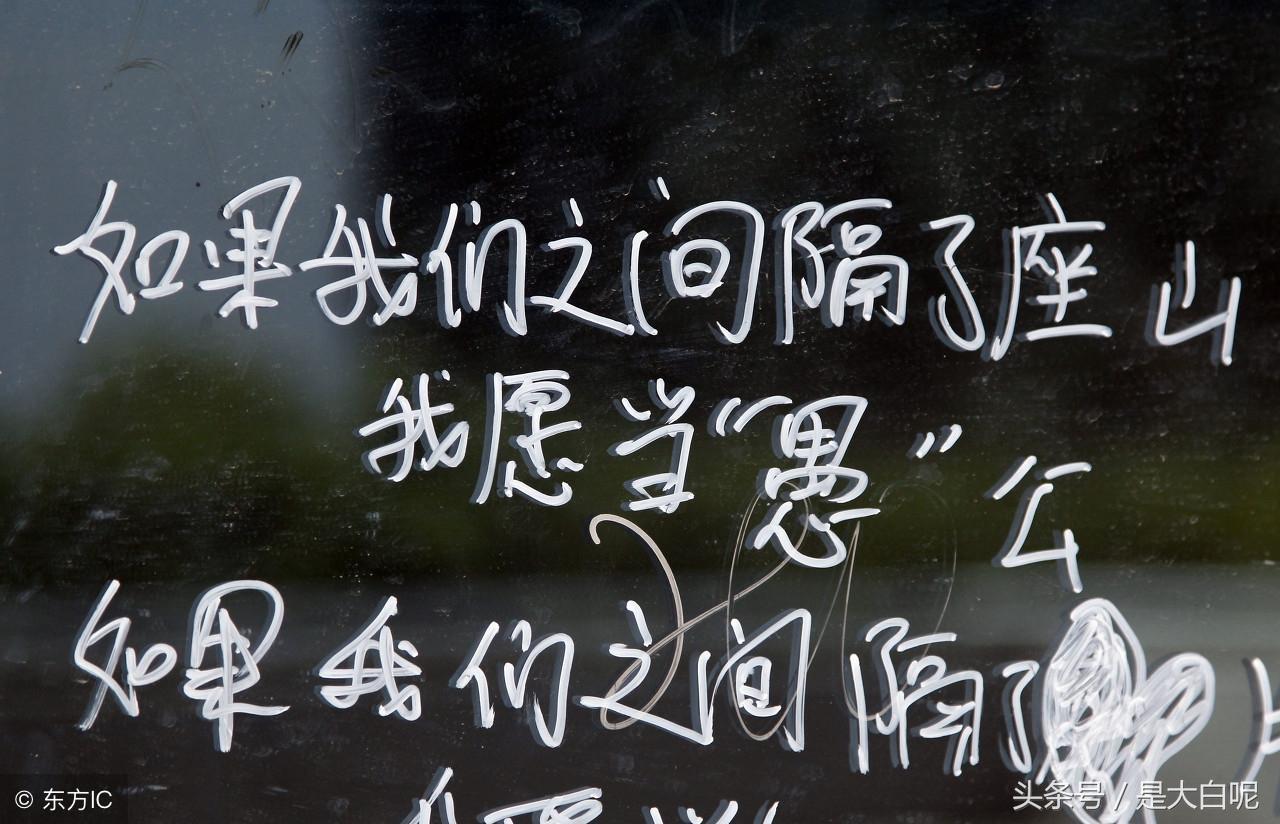 如果我们之间隔了座山
我愿当“愚”公
如果我们之间隔了
我愿当
© 东方IC
头条号 / 是大白呢